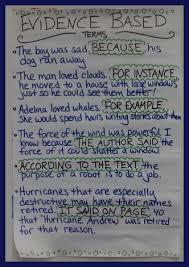 EVIDENCE BASED
TERMS
• The boy was sad BECAUSE, his
dog ran away.
• The man loved clouds. FOR INSTANCE,
he moved to a house with large windows
just so he could see them better!
• Adelina loved whales. FOR EXAMPLE,
She would spend hours writing stories about them
• The force of the wind was powerful I
know because THE AUTHOR SAID the
force of it could shatter a window.
• ACCORDING TO THE TEXT, the
purpose of a robot is to do a job.
• Hurricanes that are especially
destructive may have their names
retired. IT SAID ON PAGE 40
that "Hurricane Andrew" was retired
for that reason.